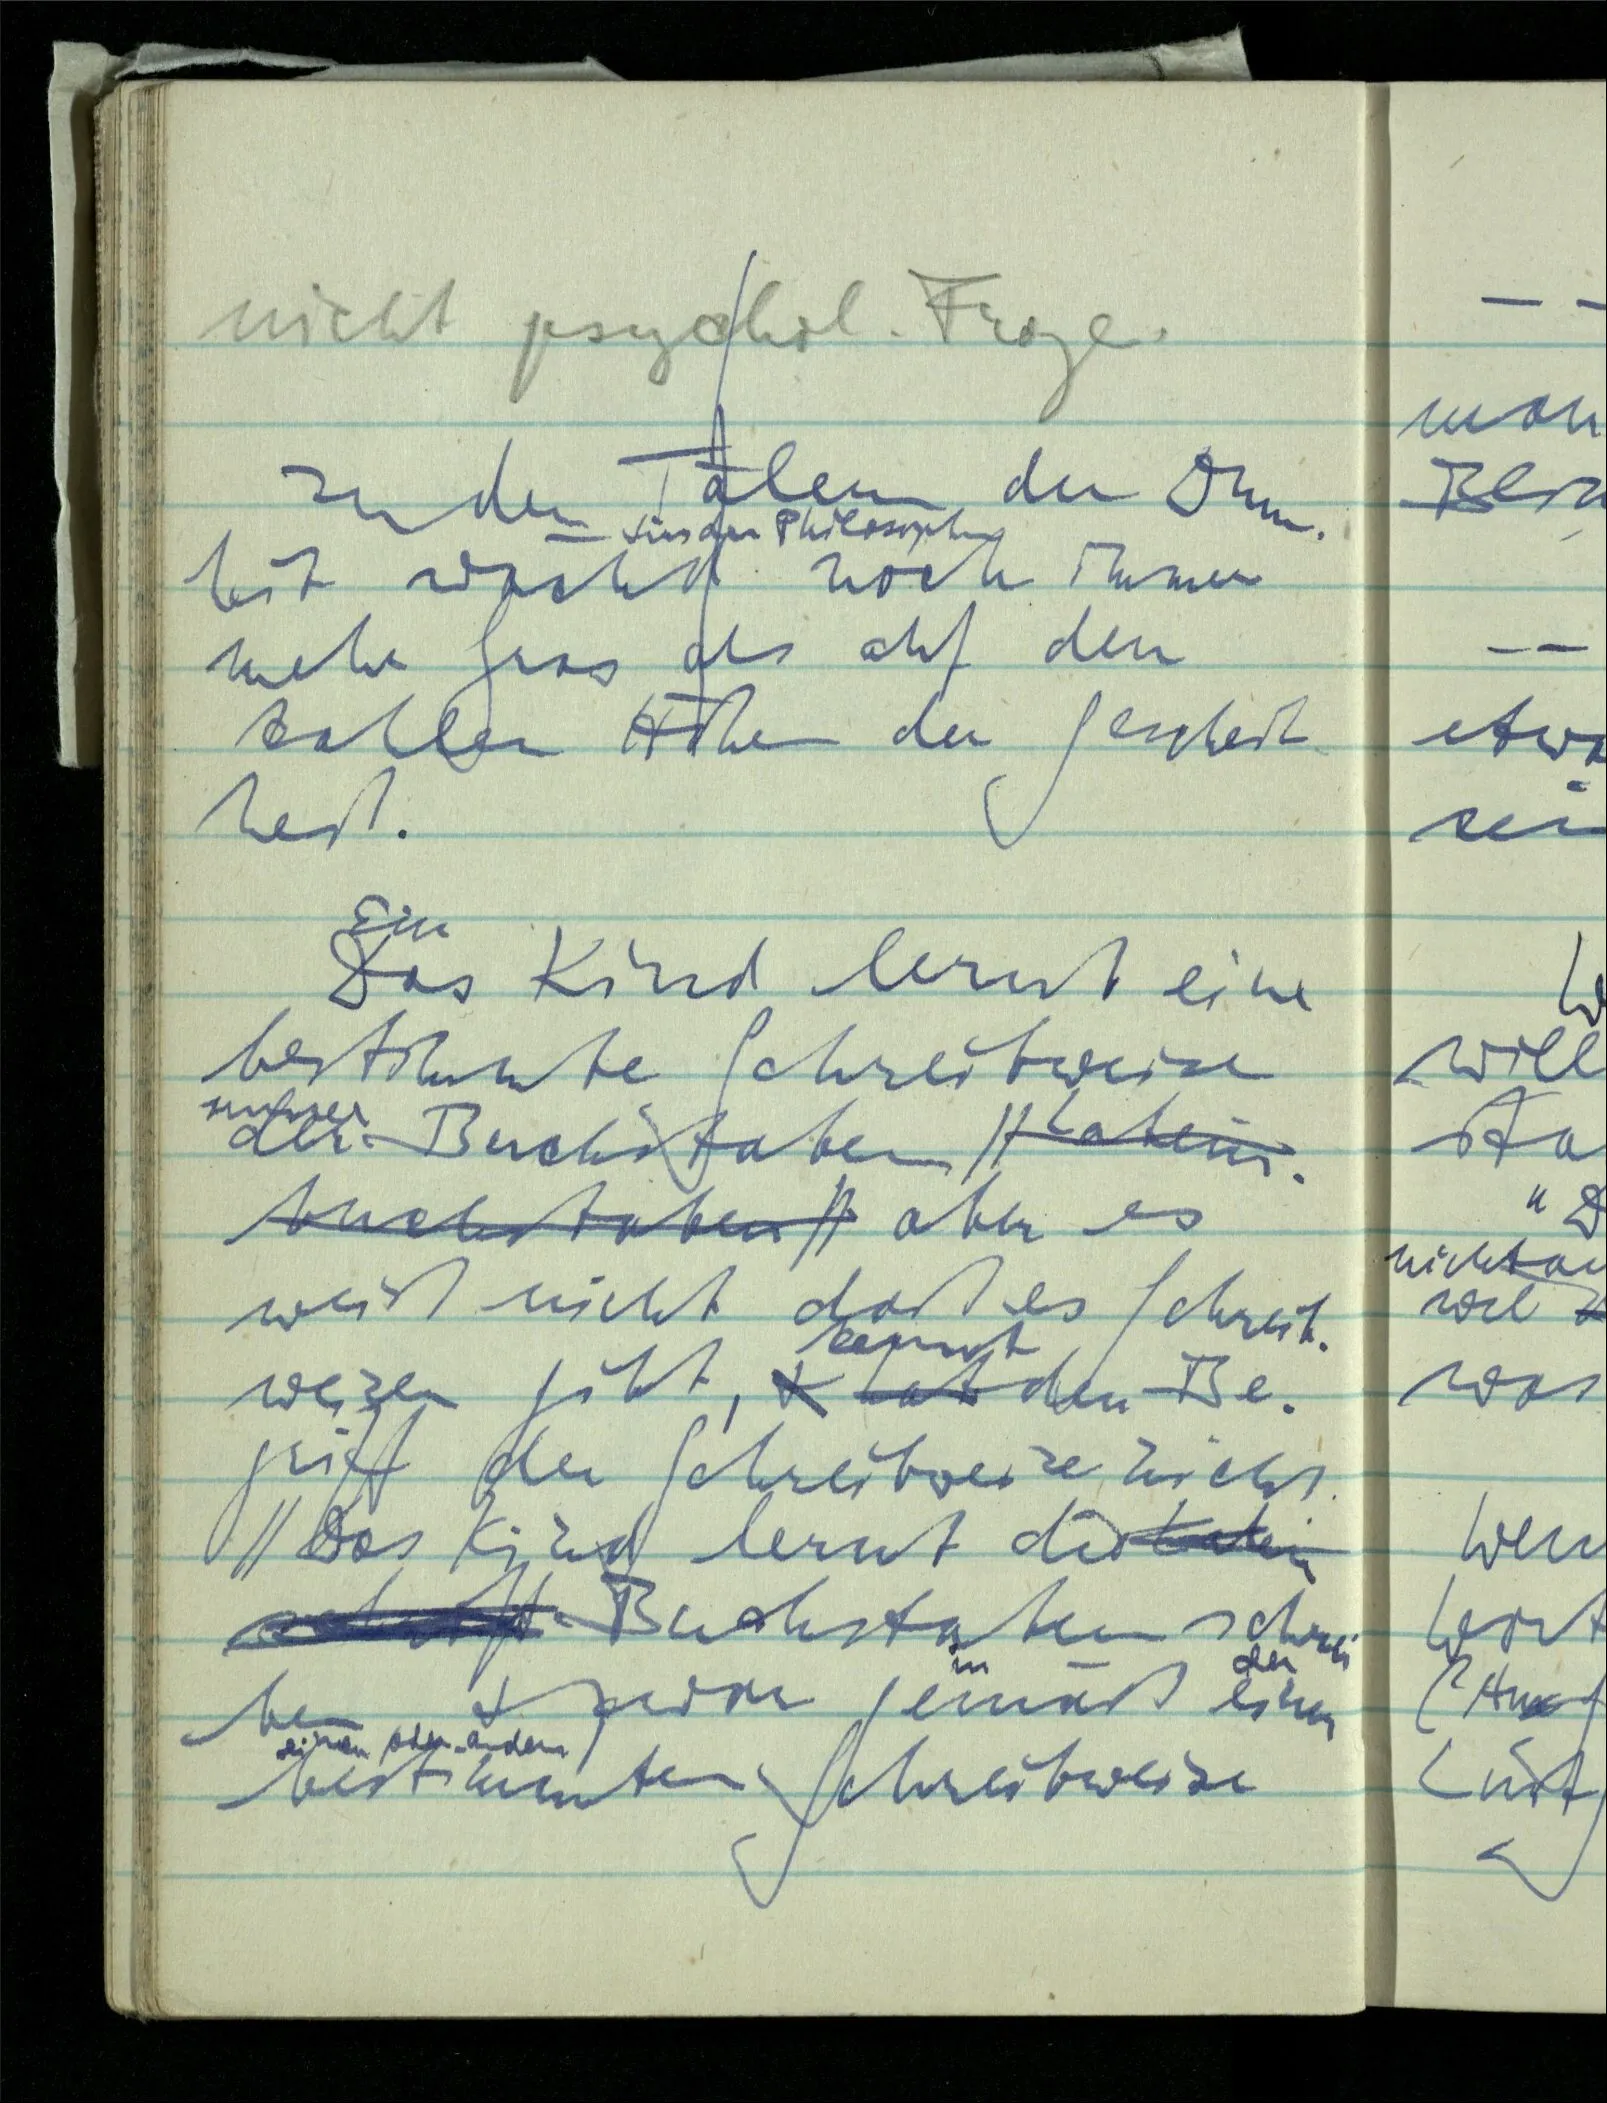 nicht psychol. Frage.
In den Tälern der Dum-
für den Philosophen
heit wächst noch immer
mehr Gras als auf den
kahlen Höhen der Gescheit
heit.
Ein
Das Kind lernt eine
bestimmte Schreibweise
unserer
der Buchstaben // Latein.
buchstaben // aber es
weiß nicht daß es Schreib-
kennt
weisen gibt, & hat den Be-
griff der Schreibweise nicht.
// Das Kind lernt die Latein
schrift Buchstaben schrei
in der
ben & zwar gemäß einer
einen oder andern
bestimmten Schreibweise
— —
man
—
etwa
sei
will
"D
nicht
was
Wenn